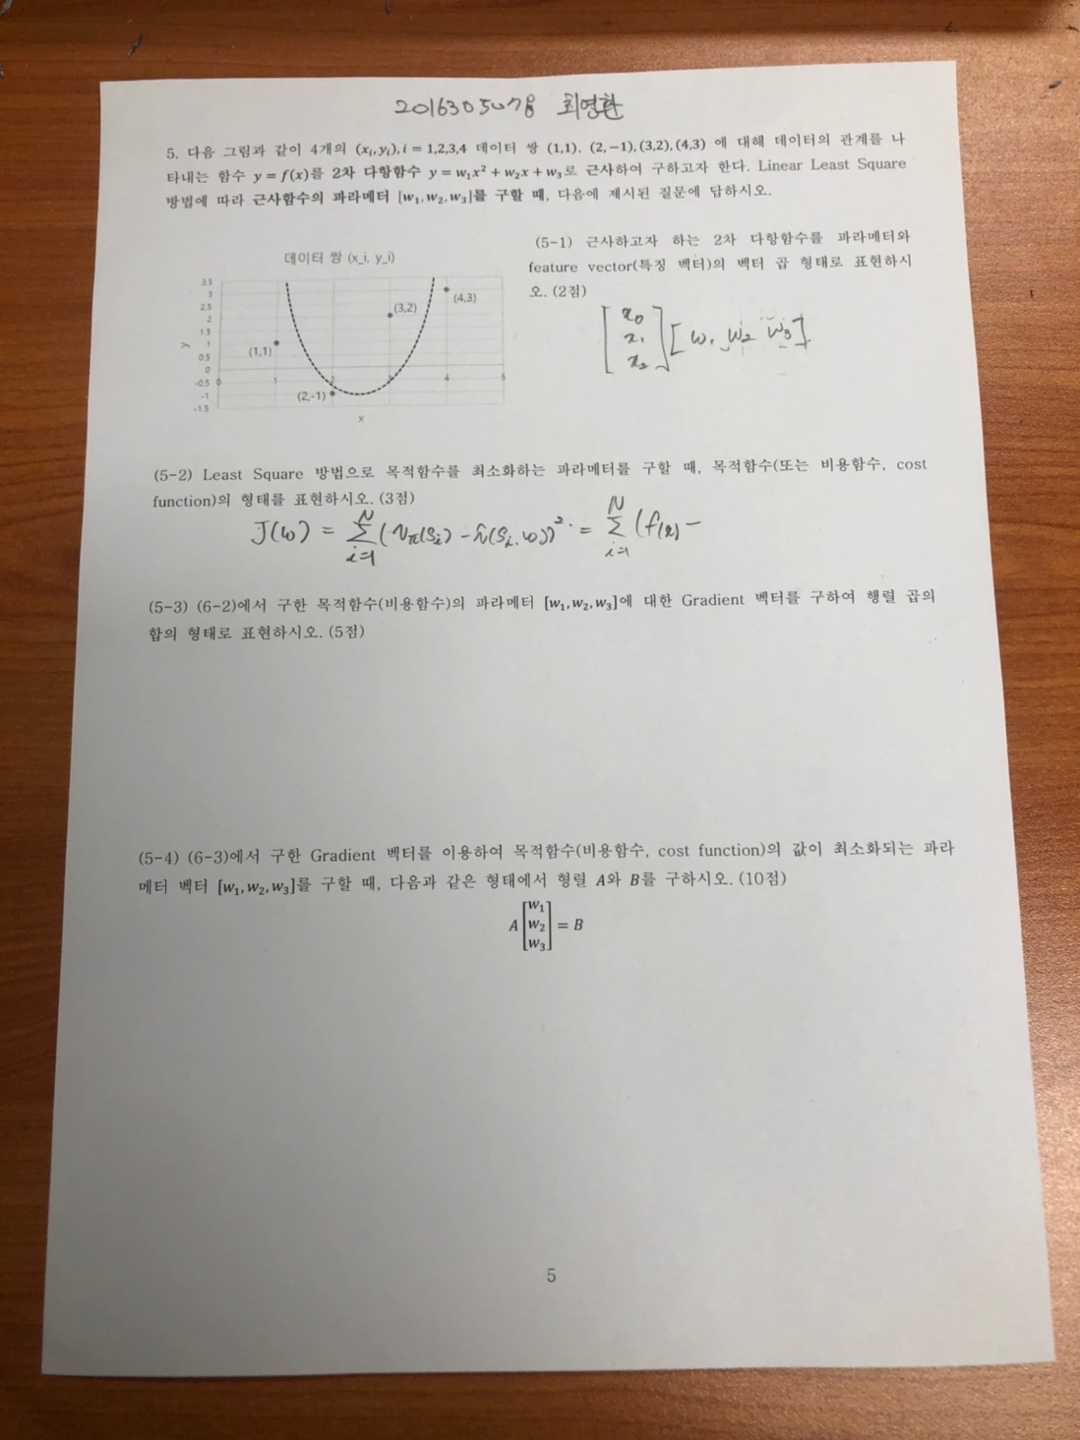 2016305078 최영환
5. 다음 그림과 같이 4개의 (xᵢ,yᵢ), i = 1,2,3,4 데이터 쌍 (1,1), (2,−1), (3,2), (4,3) 에 대해 데이터의 관계를 나
타내는 함수 y = f(x)를 2차 다항함수 y = w₁x² + w₂x + w₃로 근사하여 구하고자 한다. Linear Least Square
방법에 따라 근사함수의 파라메터 [w₁,w₂,w₃]를 구할 때, 다음에 제시된 질문에 답하시오.
데이터 쌍 (x_i, y_i)
3.5
3
2.5
2
1.5
1
0.5
0
-0.5
-1
-1.5
y
0 1 2 3 4 5
x
(1,1)
(2,-1)
(3,2)
(4,3)
(5-1) 근사하고자 하는 2차 다항함수를 파라메터와
feature vector(특징 벡터)의 벡터 곱 형태로 표현하시
오. (2점)
[x₀ x₁ x₂] [w₁ w₂ w₃]
(5-2) Least Square 방법으로 목적함수를 최소화하는 파라메터를 구할 때, 목적함수(또는 비용함수, cost
function)의 형태를 표현하시오. (3점)
J(w) = Σ_{i=1}^{N} (v_π(s_i) − v̂(s_i, w))² = Σ_{i=1}^{N} (f(x) −
(5-3) (6-2)에서 구한 목적함수(비용함수)의 파라메터 [w₁,w₂,w₃]에 대한 Gradient 벡터를 구하여 행렬 곱의
합의 형태로 표현하시오. (5점)
(5-4) (6-3)에서 구한 Gradient 벡터를 이용하여 목적함수(비용함수, cost function)의 값이 최소화되는 파라
메터 벡터 [w₁,w₂,w₃]를 구할 때, 다음과 같은 형태에서 형렬 A와 B를 구하시오. (10점)
A [w₁ w₂ w₃] = B
5